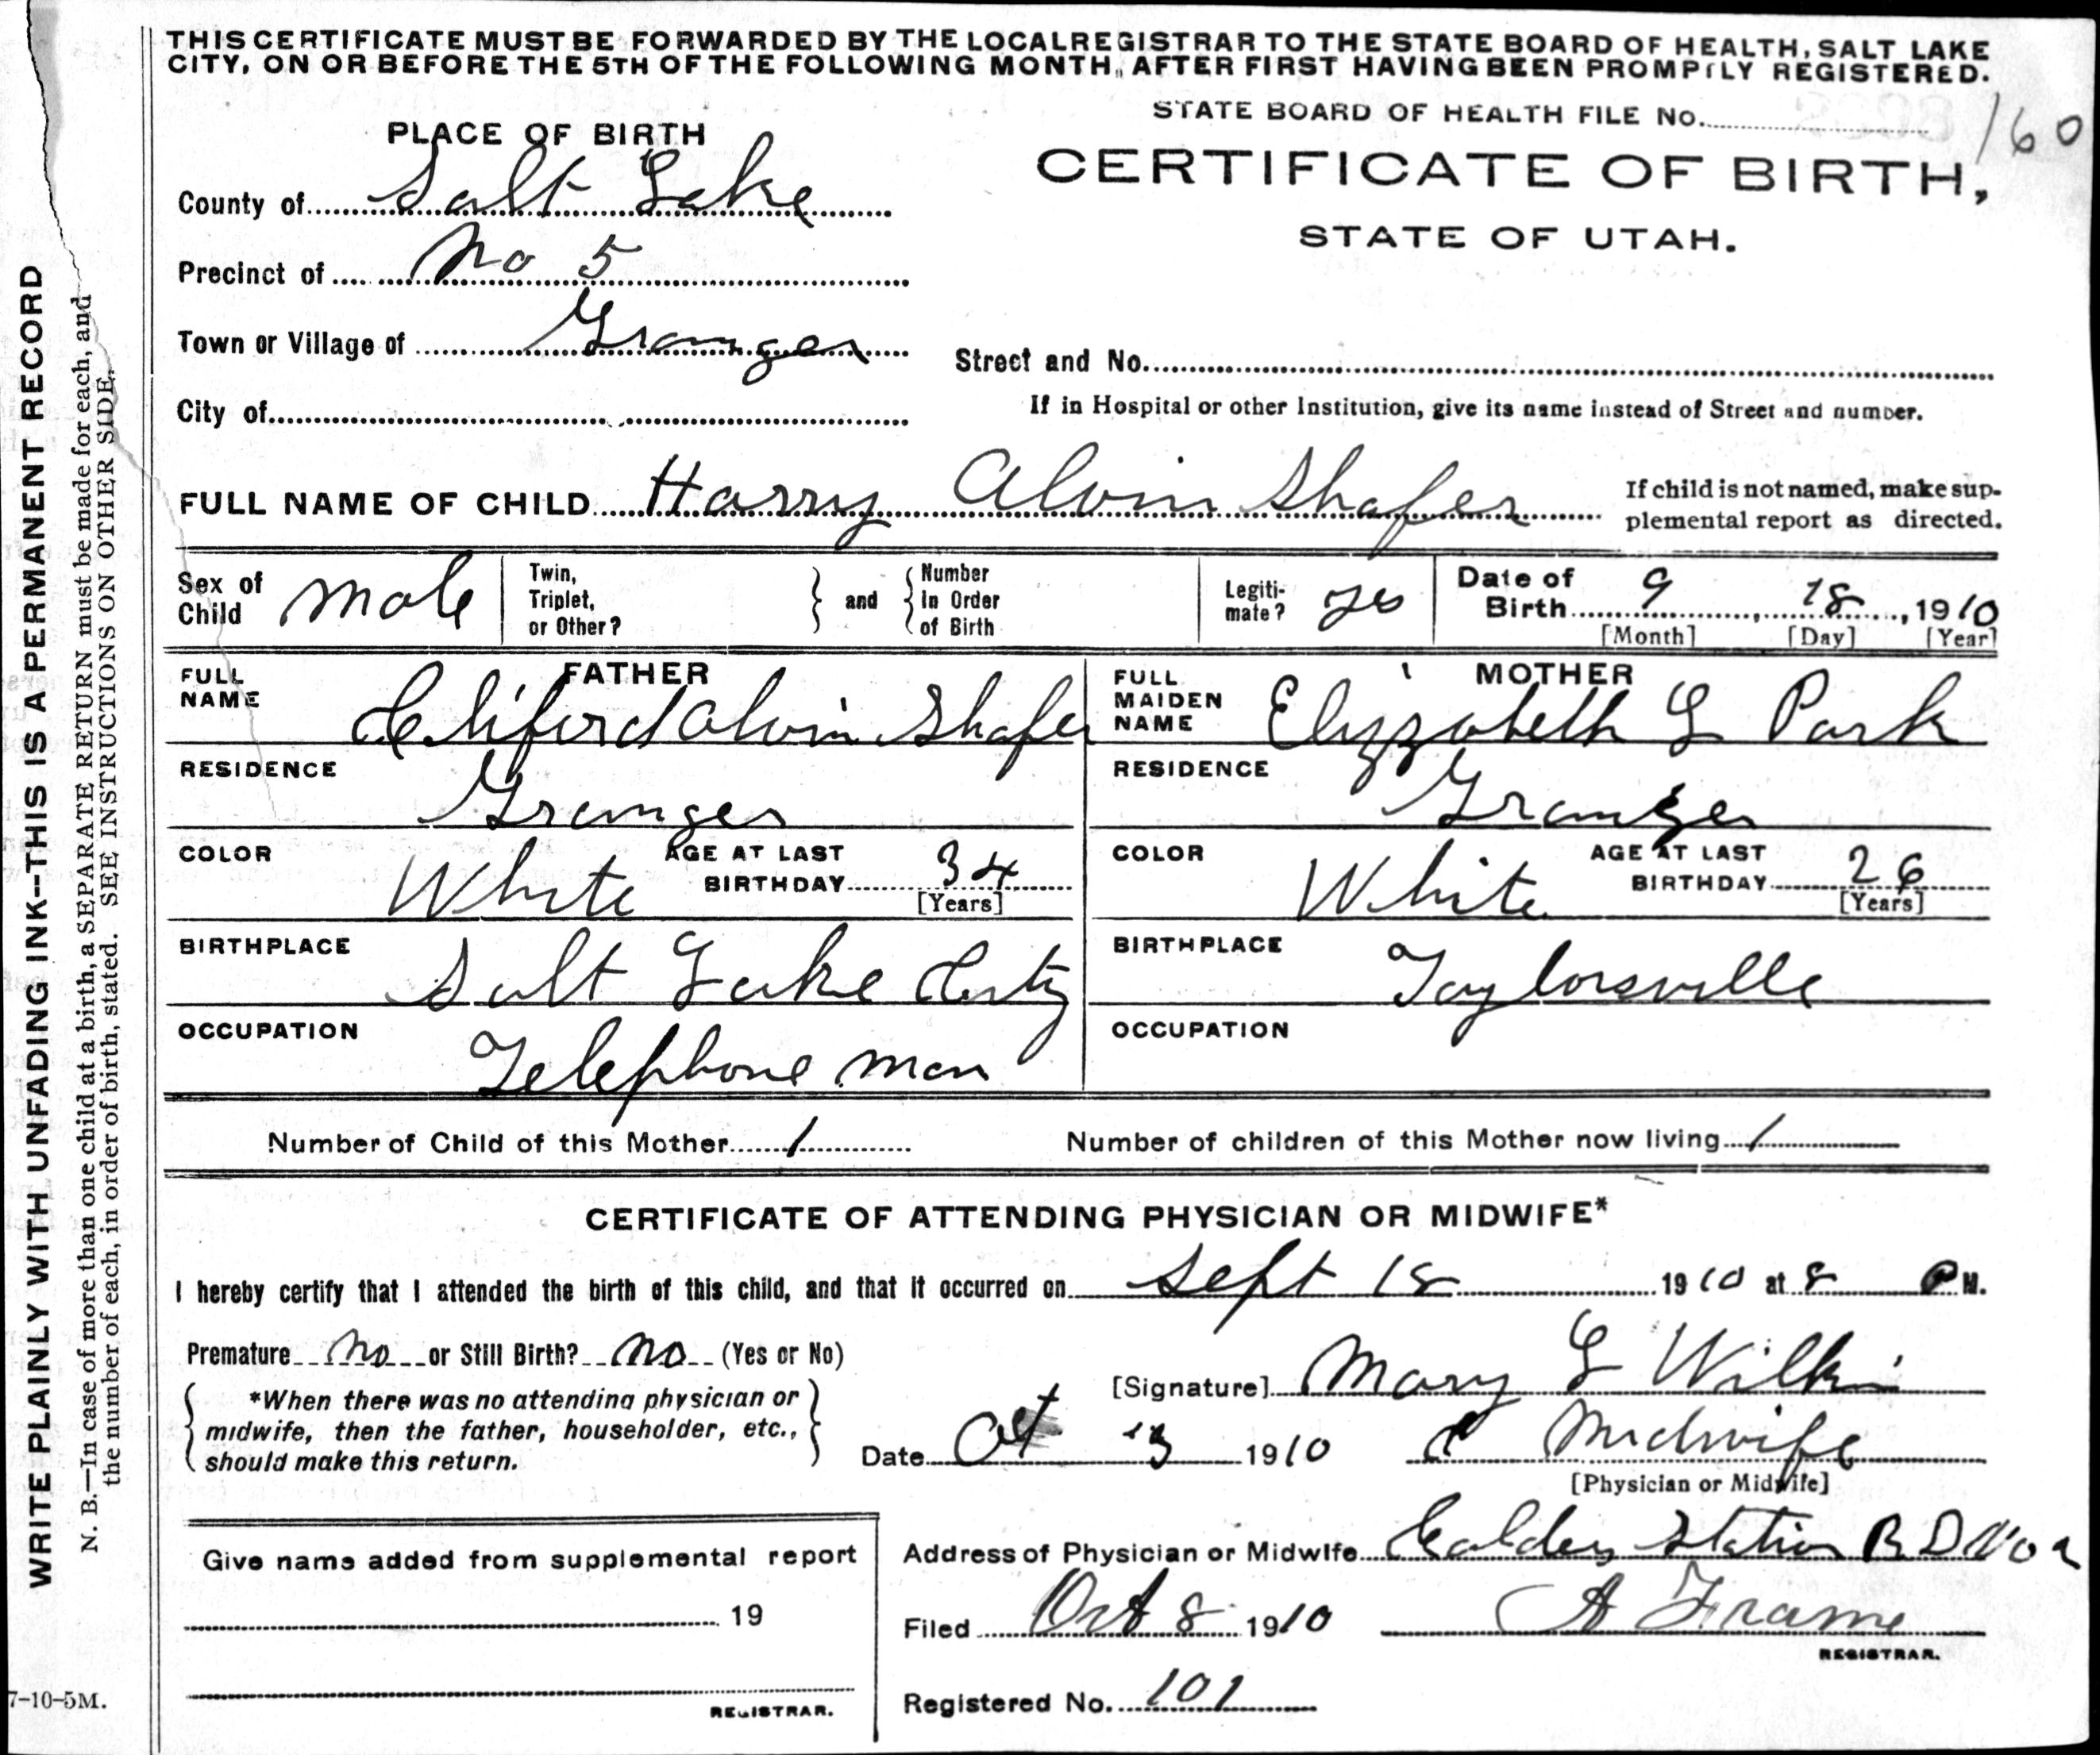 THIS CERTIFICATE MUST BE FORWARDED BY THE LOCAL REGISTRAR TO THE STATE BOARD OF HEALTH, SALT LAKE
CITY, ON OR BEFORE THE 5TH OF THE FOLLOWING MONTH, AFTER FIRST HAVING BEEN PROMPTLY REGISTERED.
STATE BOARD OF HEALTH FILE No. 160
PLACE OF BIRTH
CERTIFICATE OF BIRTH,
STATE OF UTAH.
County of Salt Lake
Precinct of No 5
Town or Village of Granger
Street and No.
City of
If in Hospital or other Institution, give its name instead of Street and number.
FULL NAME OF CHILD Harry Alvin Shafer
If child is not named, make sup-
plemental report as directed.
Sex of Child male
Twin, Triplet, or Other?
and
Number In Order of Birth
Legiti-mate? yes
Date of Birth 9, 18, 1910
[Month] [Day] [Year]
FATHER
FULL NAME Cliford Alvin Shafer
RESIDENCE Granger
COLOR White AGE AT LAST BIRTHDAY 34
[Years]
BIRTHPLACE Salt Lake City
OCCUPATION Telephone man
MOTHER
FULL MAIDEN NAME Elizzabeth L Park
RESIDENCE Granger
COLOR White AGE AT LAST BIRTHDAY 26
[Years]
BIRTHPLACE Taylorsville
OCCUPATION
Number of Child of this Mother 1
Number of children of this Mother now living 1
CERTIFICATE OF ATTENDING PHYSICIAN OR MIDWIFE*
I hereby certify that I attended the birth of this child, and that it occurred on Sept 18 1910 at 8 P M.
Premature no or Still Birth? no (Yes or No)
*When there was no attending physician or
midwife, then the father, householder, etc.,
should make this return.
[Signature] Mary L Wilkin
Date Oct 3 1910
Midwife
[Physician or Midwife]
Address of Physician or Midwife Calders Station R D No 2
Filed Oct 8 1910
A Frame
REGISTRAR.
Registered No. 101
Give name added from supplemental report
19
REGISTRAR.
7-10-5M.
WRITE PLAINLY WITH UNFADING INK--THIS IS A PERMANENT RECORD
N. B.—In case of more than one child at a birth, a SEPARATE RETURN must be made for each, and
the number of each, in order of birth, stated. SEE INSTRUCTIONS ON OTHER SIDE.